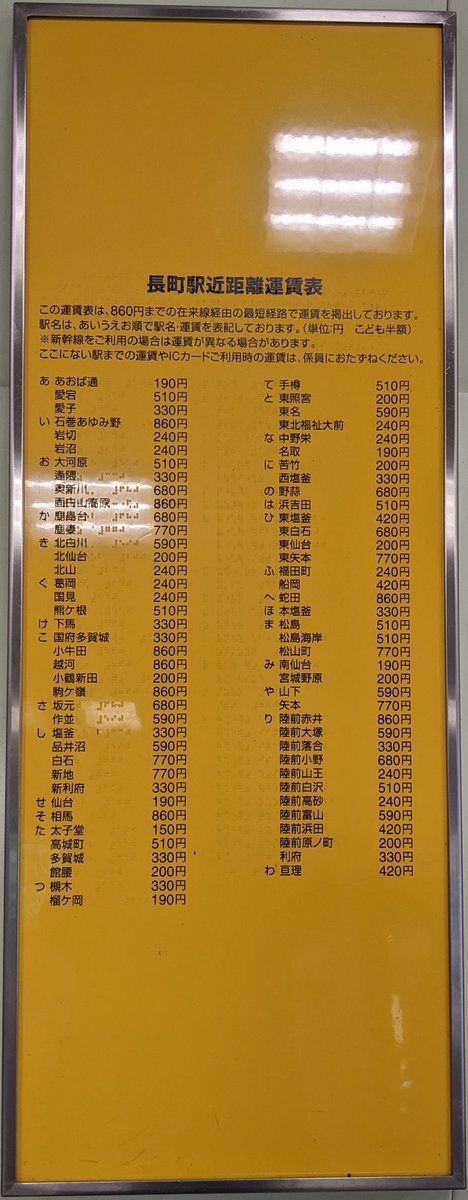 長町駅近距離運賃表
この運賃表は、860円までの在来線経由の最短経路で運賃を掲出しております。
駅名は、あいうえお順で駅名・運賃を表記しております。(単位:円 こども半額)
※新幹線をご利用の場合は運賃が異なる場合があります。
ここにない駅までの運賃やICカードご利用時の運賃は、係員におたずねください。
あ あおば通 190円
愛宕 510円
愛子 330円
い 石巻あゆみ野 860円
岩切 240円
岩沼 240円
お 大河原 510円
逢隈 330円
奥新川 680円
面白山高原 860円
か 鹿島台 680円
鹿妻 770円
き 北白川 590円
北仙台 200円
北山 240円
く 葛岡 240円
国見 240円
熊ケ根 510円
け 下馬 330円
こ 国府多賀城 330円
小牛田 860円
越河 860円
小鶴新田 200円
駒ケ嶺 860円
さ 坂元 680円
作並 590円
し 塩釜 330円
品井沼 590円
白石 770円
新地 770円
新利府 330円
せ 仙台 190円
そ 相馬 860円
た 太子堂 150円
高城町 510円
多賀城 330円
館腰 200円
つ 槻木 330円
榴ケ岡 190円
て 手樽 510円
と 東照宮 200円
東名 590円
東北福祉大前 240円
な 中野栄 240円
名取 190円
に 苦竹 200円
西塩釜 330円
の 野蒜 680円
は 浜吉田 510円
ひ 東塩釜 420円
東白石 680円
東仙台 200円
東矢本 770円
ふ 福田町 240円
船岡 420円
へ 蛇田 860円
ほ 本塩釜 330円
ま 松島 510円
松島海岸 510円
松山町 770円
み 南仙台 190円
宮城野原 200円
や 山下 590円
矢本 770円
り 陸前赤井 860円
陸前大塚 590円
陸前落合 330円
陸前小野 680円
陸前山王 240円
陸前白沢 510円
陸前高砂 240円
陸前富山 590円
陸前浜田 420円
陸前原ノ町 200円
利府 330円
わ 亘理 420円